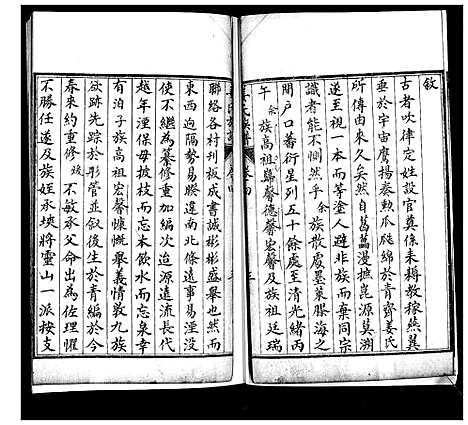 敘
古者吹律定姓設官奠係耒耨教稼燕翼
垂於宇宙鷹揚奏勲瓜綿於青齊姜氏
所傳由來久矣然自葛藟漫摭崑源莫溯
遂至視一本而等塗人避非族而棄同宗
識者能不惻然乎余族散處墨萊膠海之
間戶口蕃衍星列五十餘處至清光緒丙
午余族高祖馨德馨宏馨及族祖廷瑞
聯絡各村刋板成書誠彬彬盛舉也然而
東西迥殊勢易睽違南北條隔事易湮沒
使不繼為纂修重加編次追源遠流長代
越年湮保毋披枝而忘本飲水而忘泉幸
有泊子族高祖宏馨慷慨舉義情敦九族
欲跡先踪於彤管並叙後生於青編於
春來約重修竣不敏承父命出為佐理懼
不勝任遂及族姪永埉將靈山一派按支